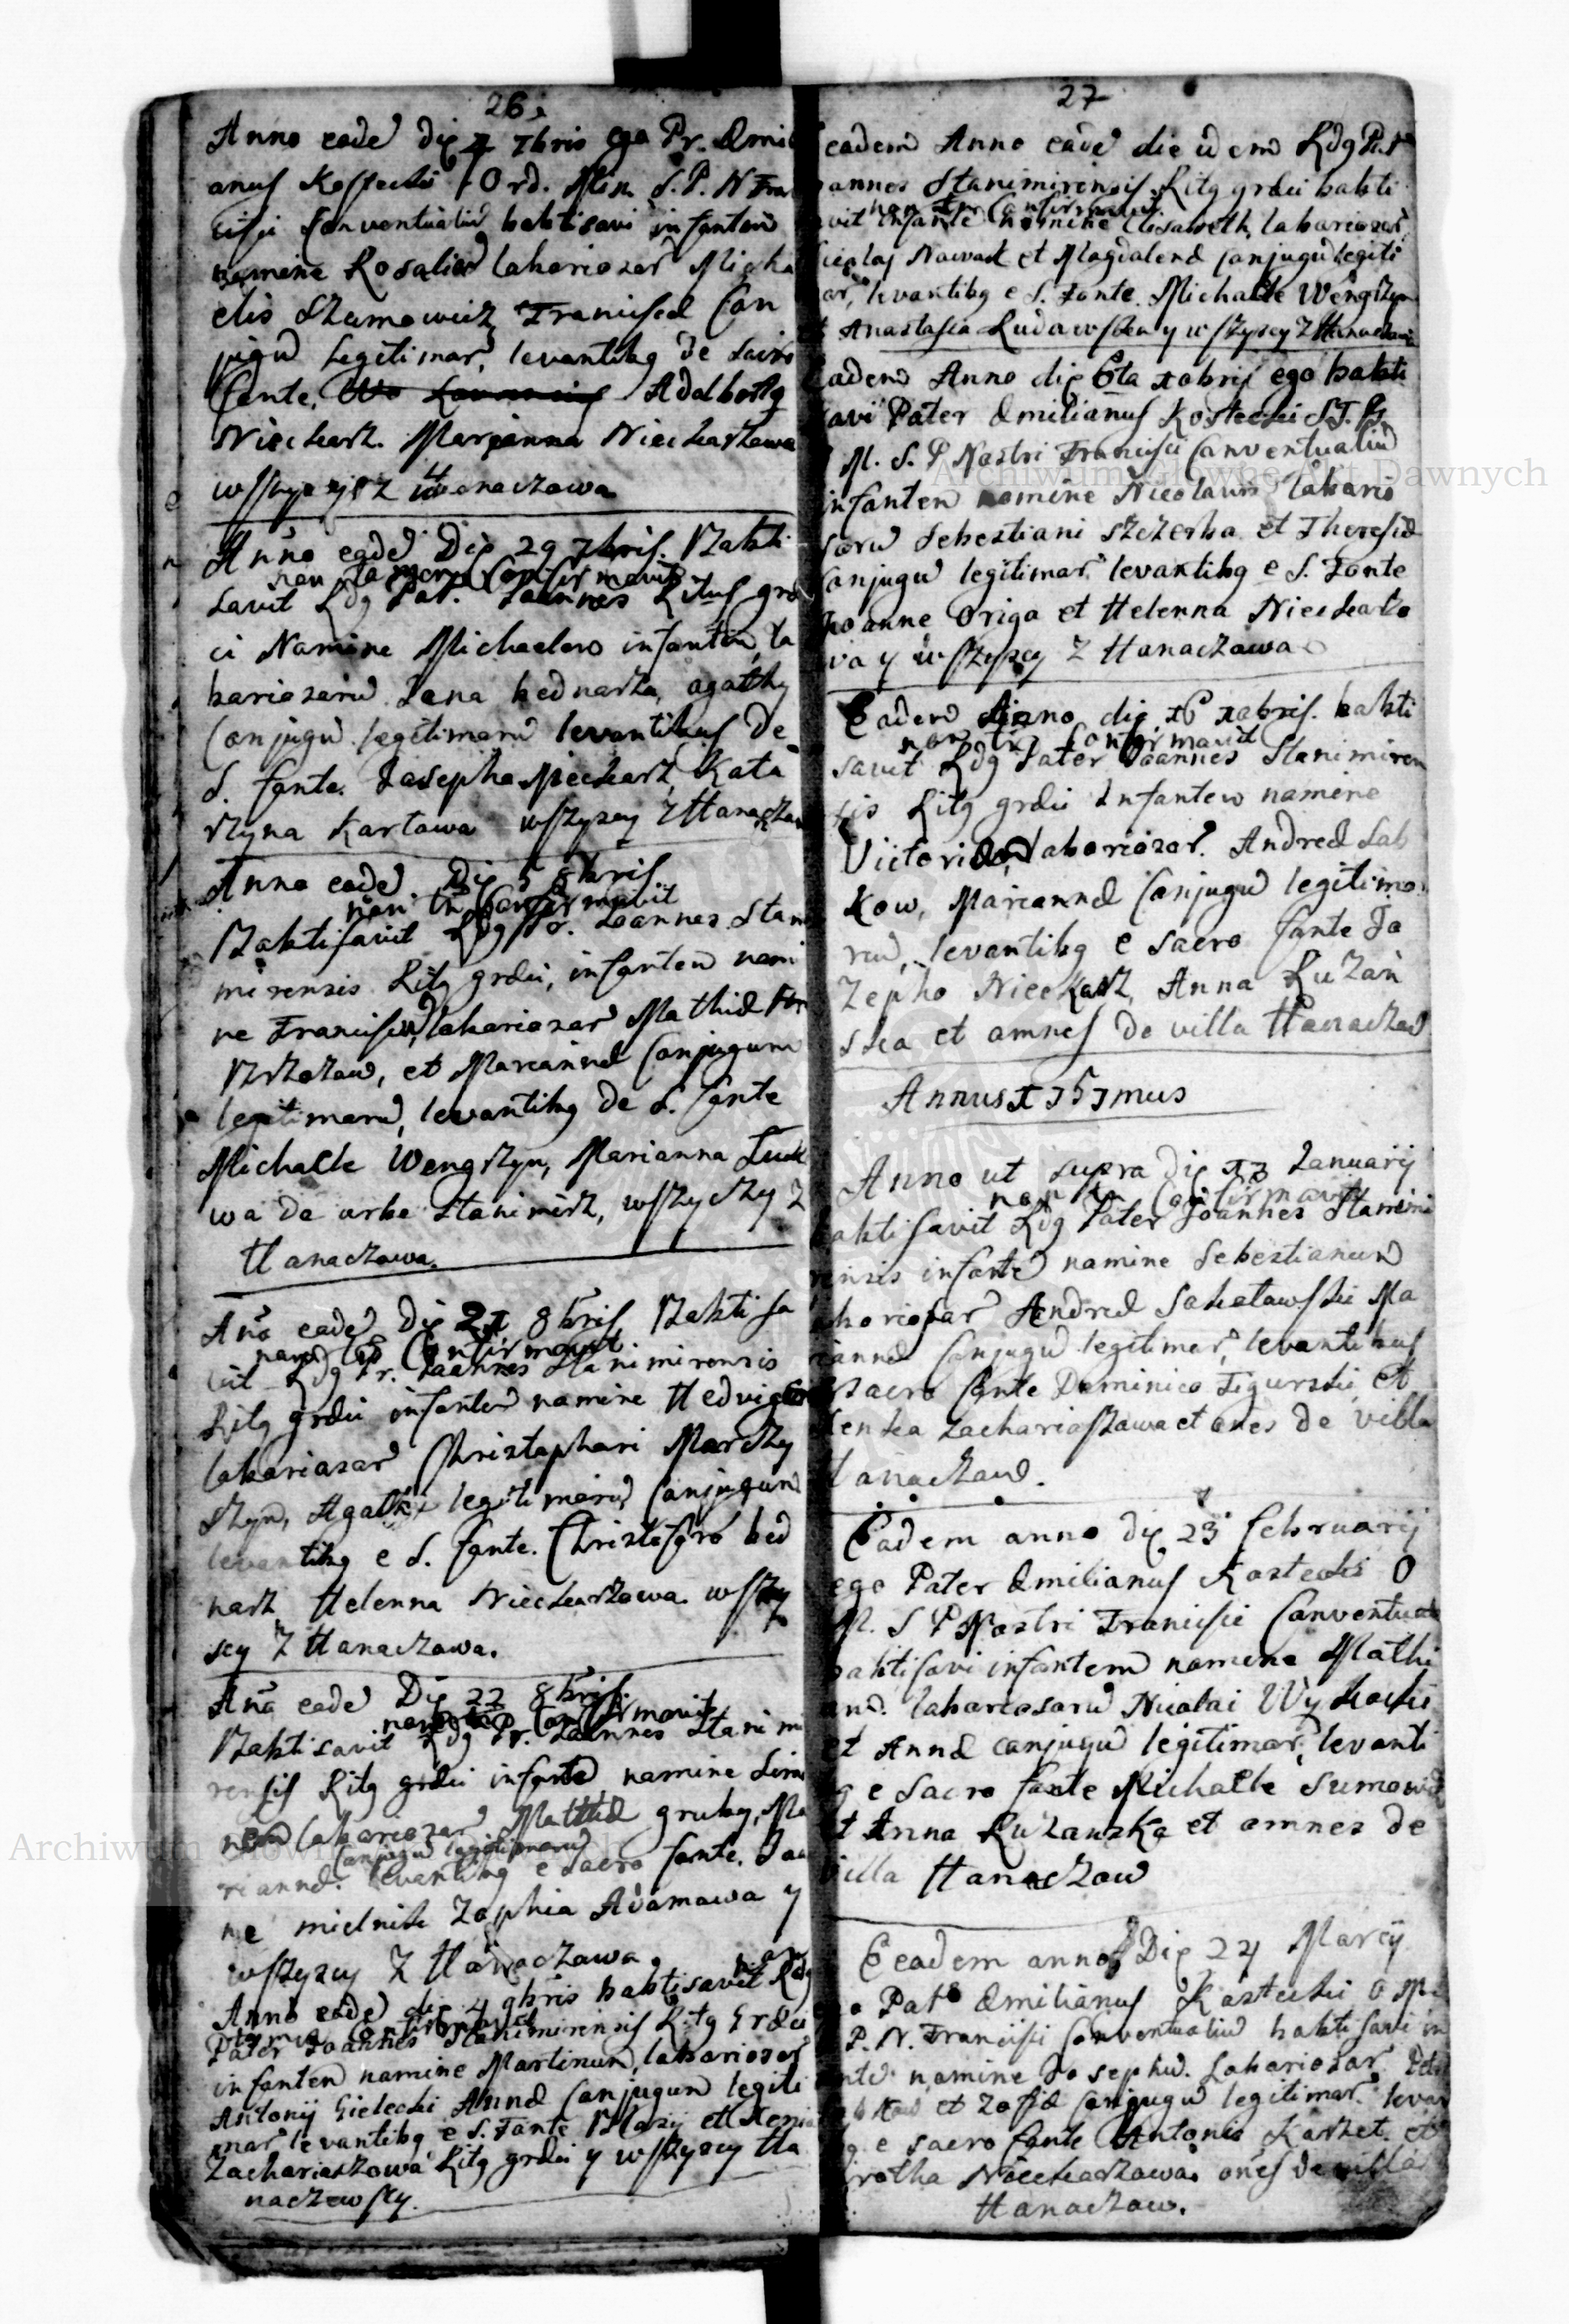 26.
Anno eade die 7 7bris ego Pr. Emili
anus Ord. Min. S. P. N Fran
cisci Conventualiu baptisavi infantem
nomine Rosaliam laboriosar Micha
elis Szumowicz Franciscae Con
jugu Legitimar, levantibg de Sacro
fonte, Adalbertg
Nieckarz. Marianna Nieckarzowa
wszyscy z Hanaczowa
Anno eade Die 29 7bris. Bapti
non tamen Confirmavit
savit Rdg Pat. Joannes Ritus grae
ci Nomine Michaelem infantem, la
boriosaru Jana bednarza, agathy
Conjugu legitimaru levantibus de
S. fonte. Josepho Nieckarz, Kata
rzyna Kartowa wszyscy z Hanaczow
Anno eade Die 5 8bris
non tn Confirmavit
Baptisavit Rdg Pr. Joannes Stani
mirensis Ritg grci, infantem nomi
ne Franciscu, laboriosar Mathiae
Brzozow, et Mariannae Conjugum
legitimaru, levantibg de S. fonte
Michaele Wengrzyn, Marianna
wa de urbe Stanimirz, wszyscy z
Hanaczowa.
Ano eade Die 21 8bris Baptisa
non tn Confirmavit
vit Rdg Pr. Joannes Stanimirensis
Ritg grci infantem nomine Hedvigem
laboriosar Christophori Marczy
szyn, Agathae legitimaru Conjugum
levantibg e S. fonte. Christoforo bed
narz, Helenna Nieckarzowa. wszy
scy z Hanaczowa.
Ano eade Die 22 8bris
non tn Confirmavit
Baptisavit Rdg Pr. Joannes Stanimi
rensis Ritg grci infante nomine Simo
nem laboriosar Matthiae gruby, Ma
Conjugu legitimaru
riannae. levantibg e Sacro fonte. Joan
ne mielnik Zophia Adamowa y
wszyscy z Hanaczowa. non
Anno eade die 4 9bris baptisavit Rdg
tamen Confirmavit
Pater Joannes Stanimirensis Ritg Grci
infantem nomine Martinum, laboriosar
Antonij Gielecki Annae Conjugum legiti
mar levantibg e S. Fonte Blazij et Xenia
Zachariaszowa Ritg grci y wszyscy Ha
naczewscy.
27
eadem Anno eade die idem Rdg Pat
oannes Stanimirensis Ritg grci bapti
non tn Confirmavit
avit infante nomine Elisabeth, laboriosar
Nicolaj Nowak et Magdalenae Conjugu legiti
ar, levantibg e S. Fonte. Michaele Wengrzyn
t Anastasia Rudawska y wszyscy z Hanaczowa
Eadem Anno die 6ta 10bris ego bapti
savi Pater Emilianus Kostecki
M. S. P Nostri Francisci Conventualiu
infantem nomine Nicolaum laborio
saru Sebestiani Szczerba et Theresiae
Conjugu legitimar levantibg e S. Fonte
Joanne Origa et Helenna Nieckarzo
wa y wszyscy z Hanaczowa
Eadem Anno die 16 10bris. bapti
non tn Confirmavit
savit Rdg Pater Joannes Stanimiren
sis Ritg grci Infantem nomine
Victoriam, laboriosar. Andreae Sab
kow, Mariannae Conjugu legitima
ru, levantibg e Sacro fonte Jo
zepho Nieckarz, Anna Ruzan
ska et omnes de villa Hanaczow
Annus 1757mus
Anno ut supra die 13 Januarij
non tn Confirmavit
baptisavit Rdg Pater Joannes Stanimi
rensis infante nomine Sebestianum
laboriosar Andreae Sokolowski Ma
riannae Conjugu legitimar, levantibus
e Sacro fonte Dominico Figurski et
Zachariaszowa et ones de villa
Hanaczow.
Eadem anno die 23 februarij
ego Pater Emilianus Kostecki O
M. S P Nostri Francisci Conventual
baptisavi infantem nomine Mathi
am. laboriosaru Nicolai
et Annae conjugu legitimar, levanti
bg e Sacro fonte Michaele Sumowicz
et Anna Ruzanska et omnes de
villa Hanaczow
Eeadem anno Die 24 Marcij
ego Pater Emilianus Kostecki O Mi
P. N. Francisci Conventualiu baptisavi in
fante nomine Josephu. Laboriosar
et Zofiae Conjugu legitimar levan
bg e sacro fonte Antonio Karzet. et
Dorotha Nieckarzowa. ones de villa
Hanaczow.
Archiwum Główne Akt Dawnych
Archiwum Główne Akt Dawnych